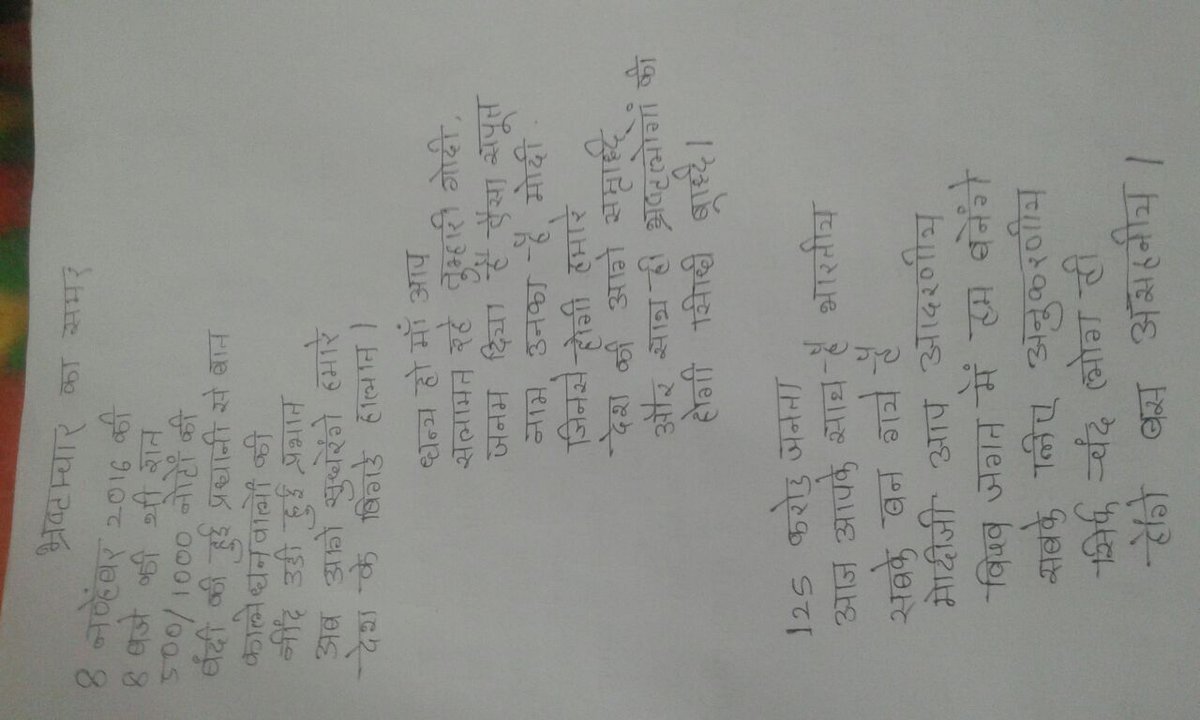 भ्रष्टाचार का समर
8 नव्हेंबर 2016 की
8 बजे की थी रात
500/1000 नोटों की
बंदी की हुई प्रधानी से बात
कालेधनवालों की
नींद उडी हुई प्रभात
अब आगे सुधरेंगे हमारे
देश के बिगडे हालात।
धन्य हो माँ आप
सलामत रहे तुम्हारी गोदी,
जनम दिया है ऐसा सपूत
नाम उनका है मोदी.
जिनसे होगी हमारे
देश की आगे समृध्दि,
और साथ ही भ्रष्टलोगों की
होगी सिधी बुध्दि।
125 करोड जनता
आज आपके साथ है भारतीय
सबके बन गये है
मोदीजी आप आदरणीय
विश्व जगत में हम बनेंगे
सबके लिए अनुकरणीय
सिर्फ चंद लोग ही
होंगे बस असहनीय।